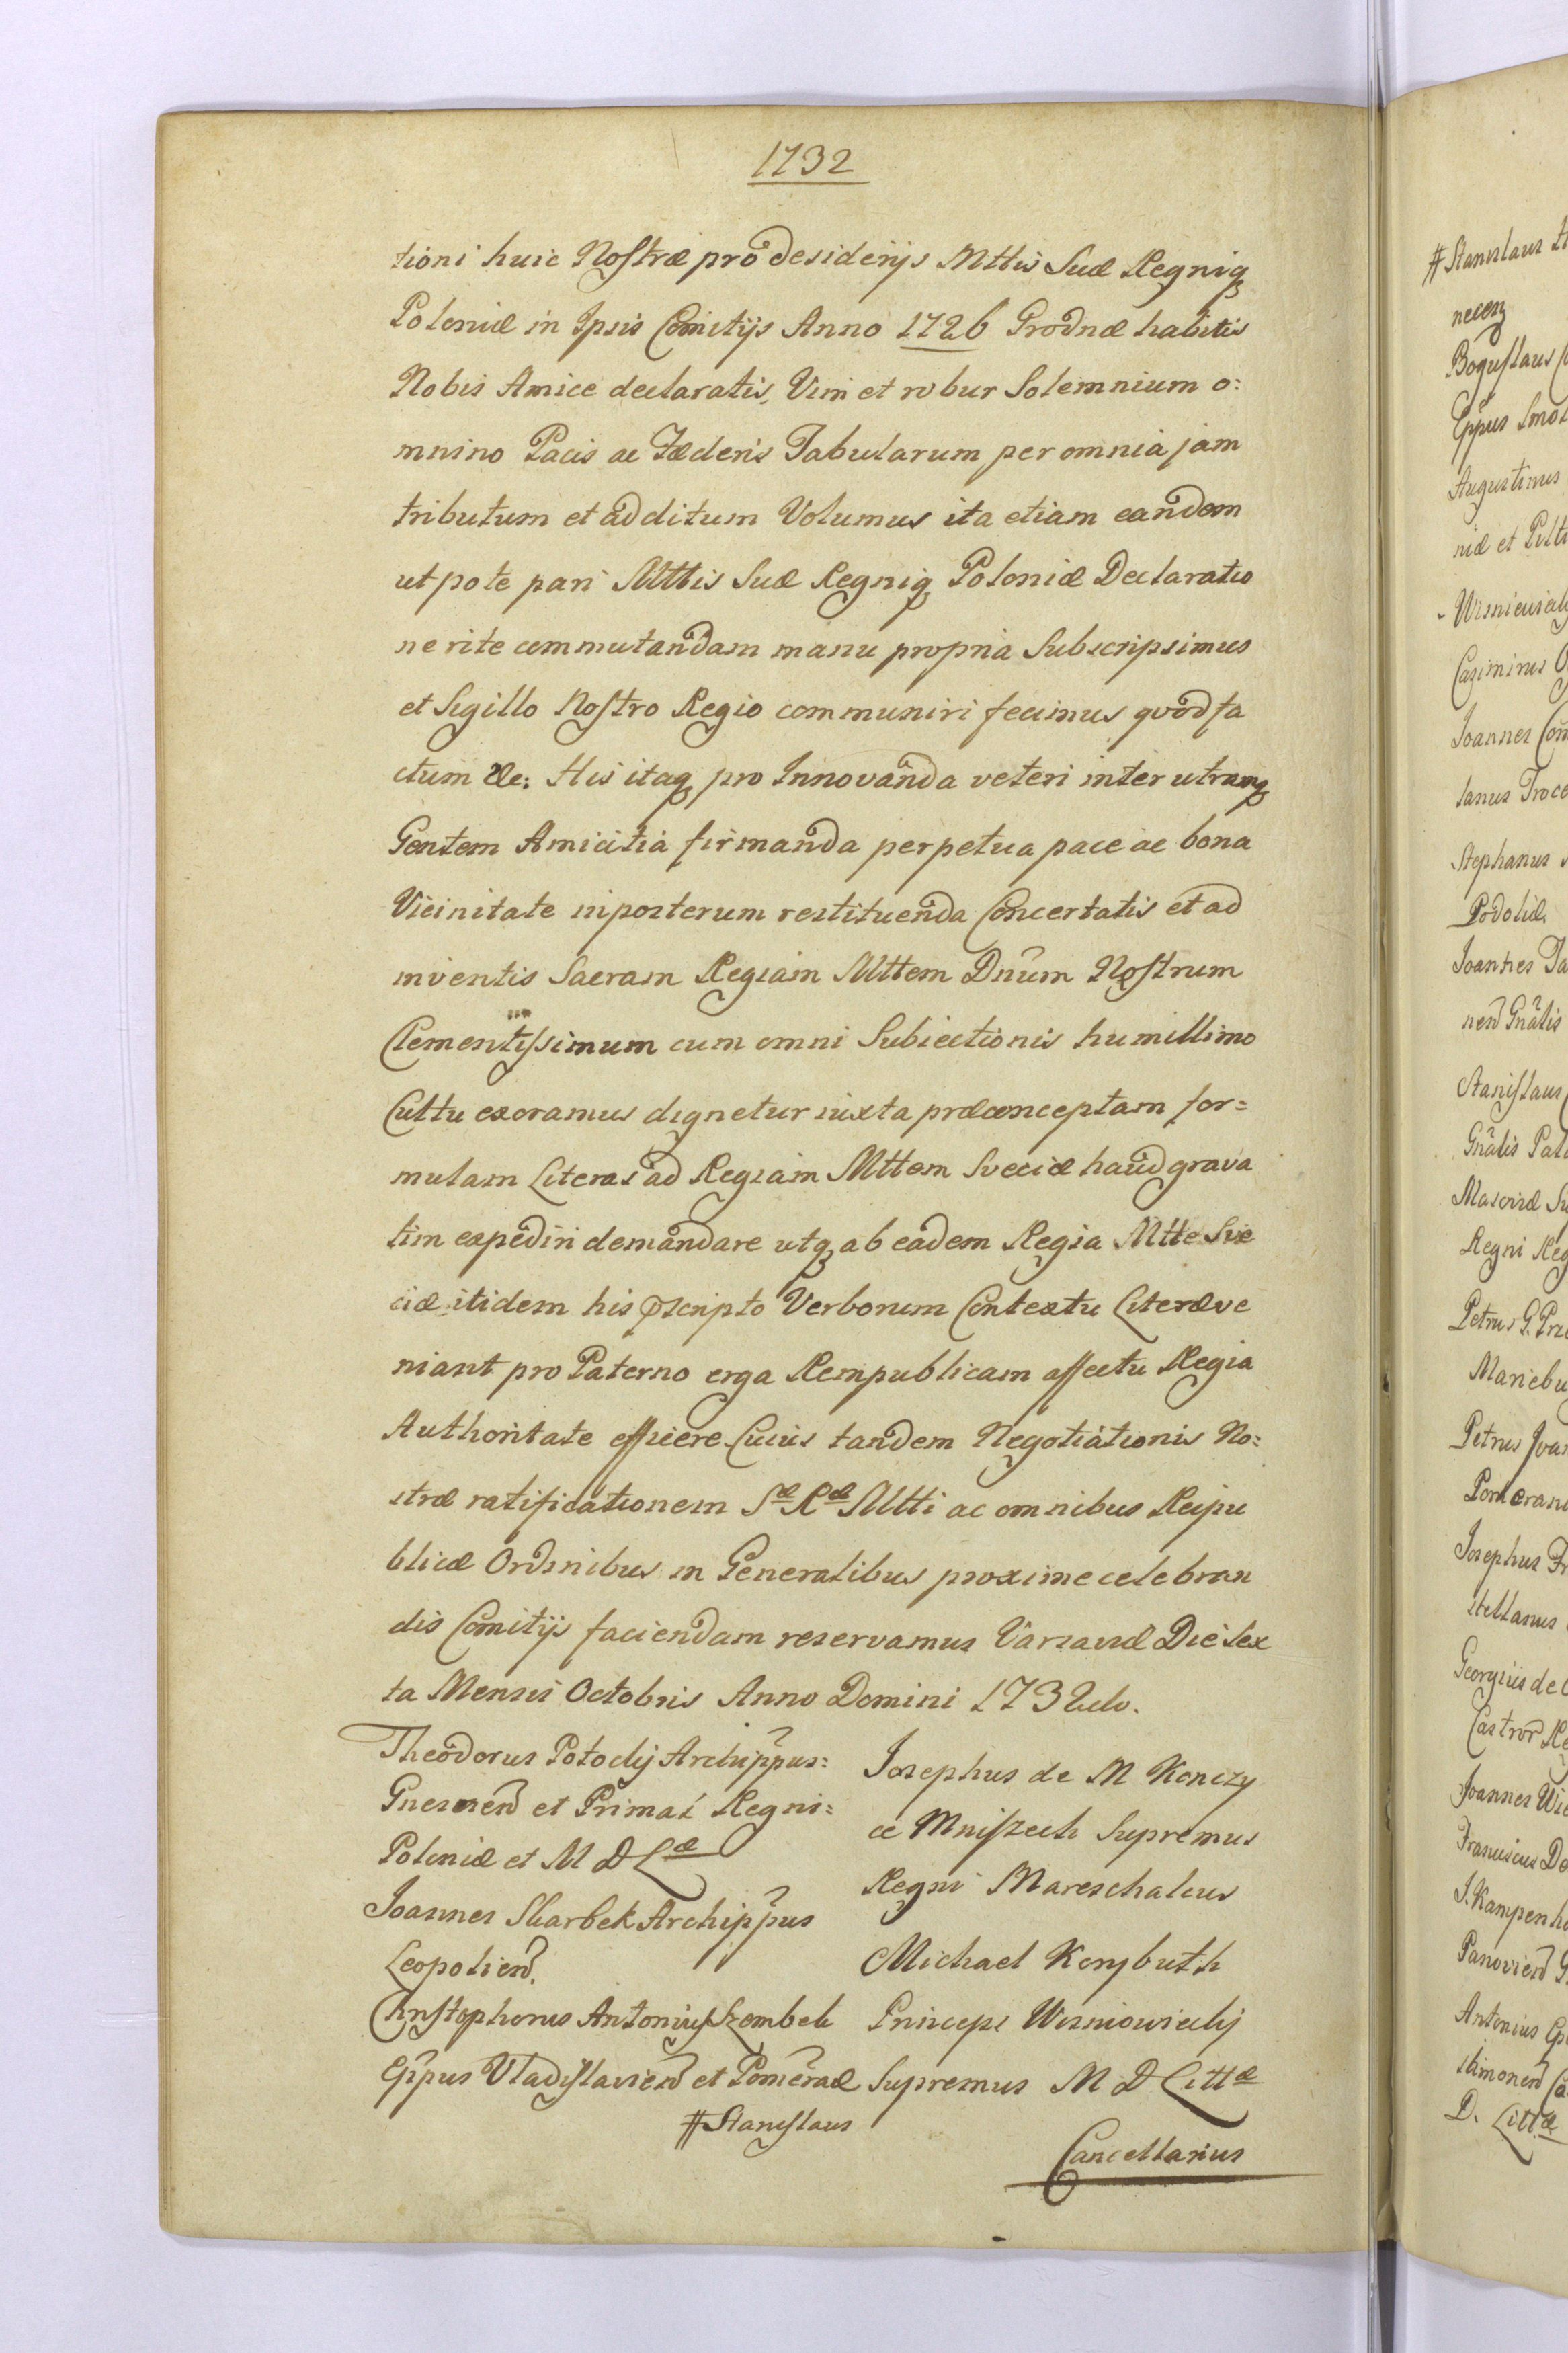 1732
tioni huic Nostræ pro desiderijs Mttis Suæ Regniq
Poloniæ in Ipsis Comitijs Anno 1726 Grodnæ habitis
Nobis Amice declaratis, Vim et robur Solemnium o:
mnino Pacis ac Fæderis Tabularum per omnia jam
tributum et additum Volumus ita etiam eandem
utpote pari Mttis Suæ Regniq Poloniæ Declaratio
ne rite commutandam manu propria Subscripsimus
et Sigillo Nostro Regio communiri fecimus quod fa
ctum &c: His itaq pro Innovanda veteri inter utramq
Gentem Amicitia firmanda perpetua pace ac bona
Vicinitate inposterum restituenda Concertatis et ad
inventis Sacram Regiam Mttem Dnum Nostrum
Clementissimum cum omni Subiectionis humillimo
Cultu exoramus dignetur iuxta præconceptam for=
mulam Literas ad Regiam Mttem Sveciæ haud grava
tim expediri demandare utq ab eadem Regia Mtte Sve
ciæ itidem his præscripto Verborum Contextu Literæ ve
niant pro Paterno erga Rempublicam affectu Regia
Authoritate efficere Cuius tandem Negotiationis No:
stræ ratificationem Sæ Ræ Mtti ac omnibus Reipu
blicæ Ordinibus in Generalibus proxime celebran
dis Comitijs faciendam reservamus Varsaviæ Die Sex
ta Mensis Octobris Anno Domini 1732do.
Theodorus Potockij Archippus:
Gnesnen et Primas Regni:
Poloniæ et M D Læ
Joannes Skarbek Archippus
Leopolien.
Christophorus Antonius Szembek
Eppus Vladislavien et Pomeraæ
#Stanislaus
Josephus de M Konczy
ce Mniszech Supremus
Regni Mareschalcus
Michael Korybuth
Princeps Wisniowieckij
Supremus M D Littæ
Cancellarius
#Stanislaus
necen
Bogustaus
Eppus Smol
Augustinus
niæ et Pilt
Wisnieviecky
Casimirus
Joannes
lanus Troce
Stephanus
Podoliæ.
Joannes Ta
nen Gnalis
Stanislaus
Gnalis Pala
Masoviæ
Regni Reg
Petrus G. Prz
Marieb
Petrus Joan
Pomeran
Josephus
stellanus
Georgius de
Castror Re
Joannes
Franciscus
J. Kampenh
Panovien
Antonius
stimonen
D. Littæ